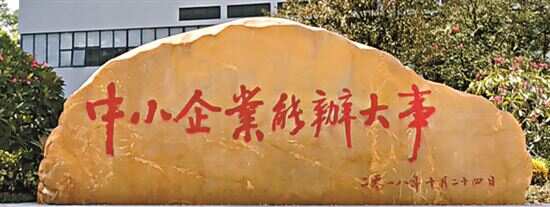 中小企業能辦大事
二〇一八年十月二十四日